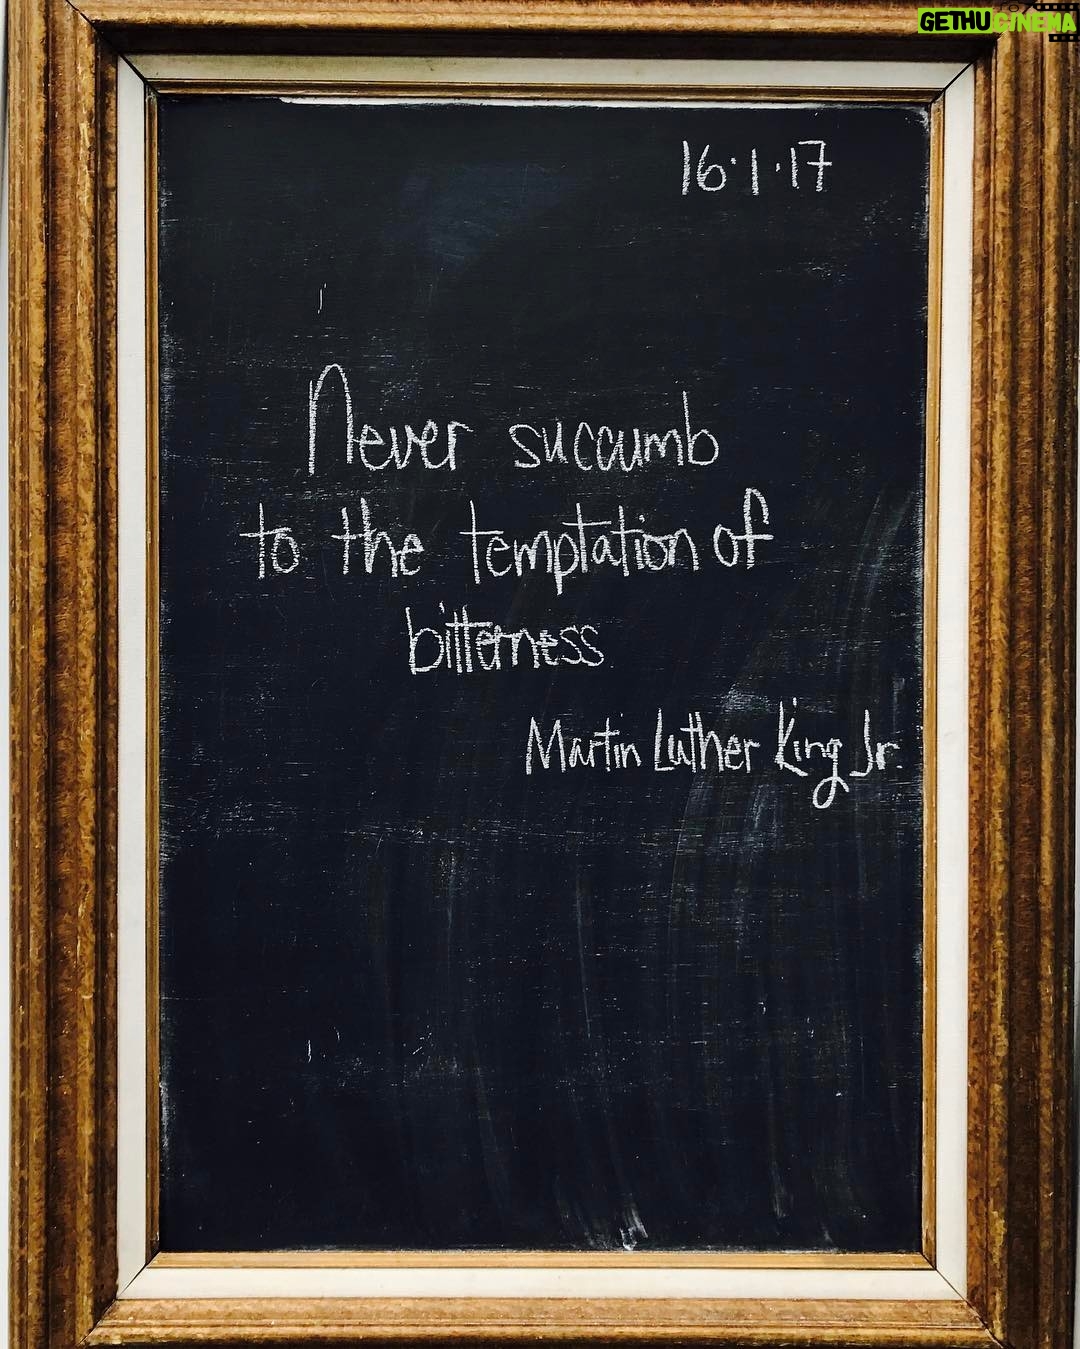 GETHUCINEMA
16.1.17
Never succumb
to the temptation of
bitterness
Martin Luther King Jr.